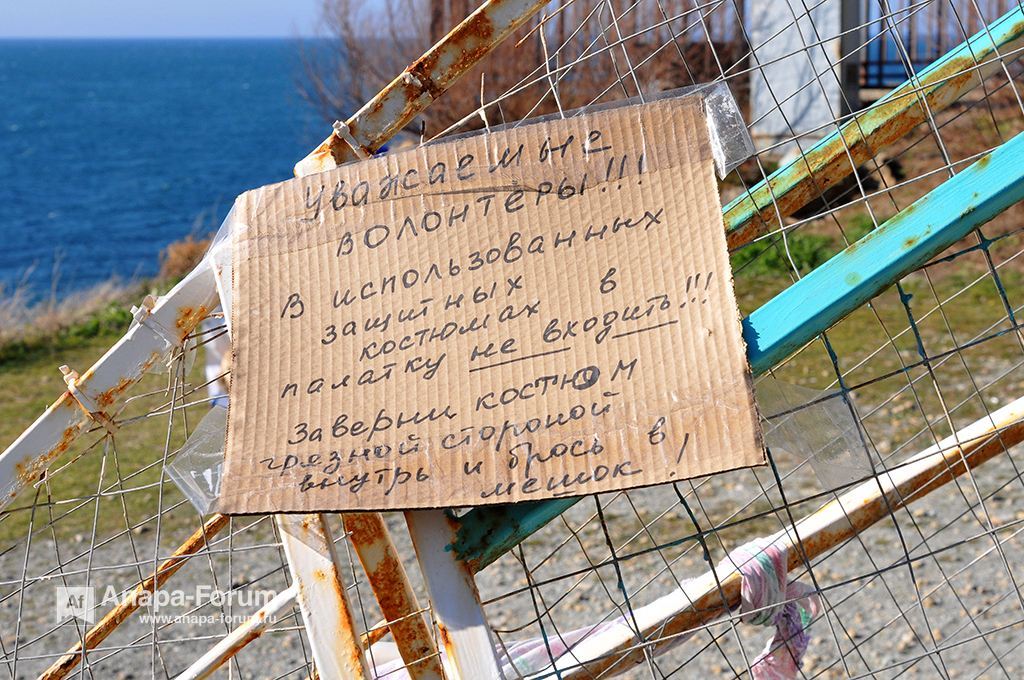 Уважаемые
волонтеры!!!
В использованных
защитных
костюмах в
палатку не входить!!!
Заверни костюм
грязной стороной
внутрь и брось в
мешок!
Af Anapa-Forum
www.anapa-forum.ru